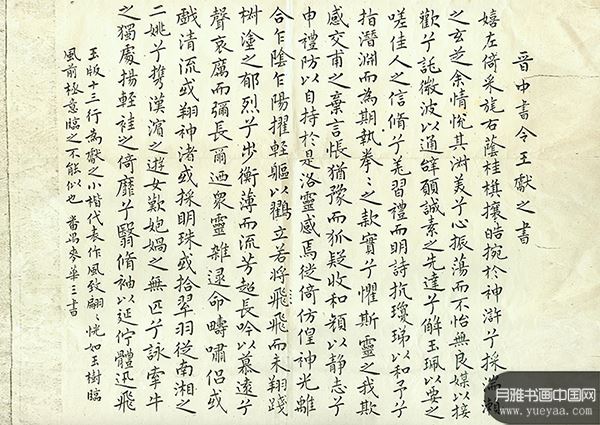 晋中書令王獻之書
嬉左倚采旄右蔭桂旗攘皓捥於神滸兮採湍瀨
之玄芝余情悅其淑美兮心振蕩而不怡無良媒以接
歡兮託微波以通辝願誠素之先達兮解玉珮以要之
嗟佳人之信脩兮羌習禮而明詩抗瓊珶以和予兮
指潛淵而為期執拳〻之款實兮懼斯靈之我欺
感交甫之棄言悵猶豫而狐疑收和顏以靜志兮
申禮防以自持於是洛靈感焉徙倚仿偟神光離
合乍陰乍陽擢輕軀以鶴立若將飛而未翔踐
椒塗之郁烈兮步衡薄而流芳超長吟以慕遠兮
聲哀厲而彌長爾迺眾靈雜遝命疇嘯侶或
戲清流或翔神渚或採明珠或拾翠羽從南湘之
二姚兮攜漢濱之遊女歎炮媧之無匹兮詠牽牛
之獨處揚輕袿之倚靡兮翳脩袖以延佇體迅飛
玉版十三行為獻之小楷代表作風致翩〻恍如玉樹臨
風前極意臨之不能似也 番禺麥華三書
月雅书画中国网
www.yueyaa.com